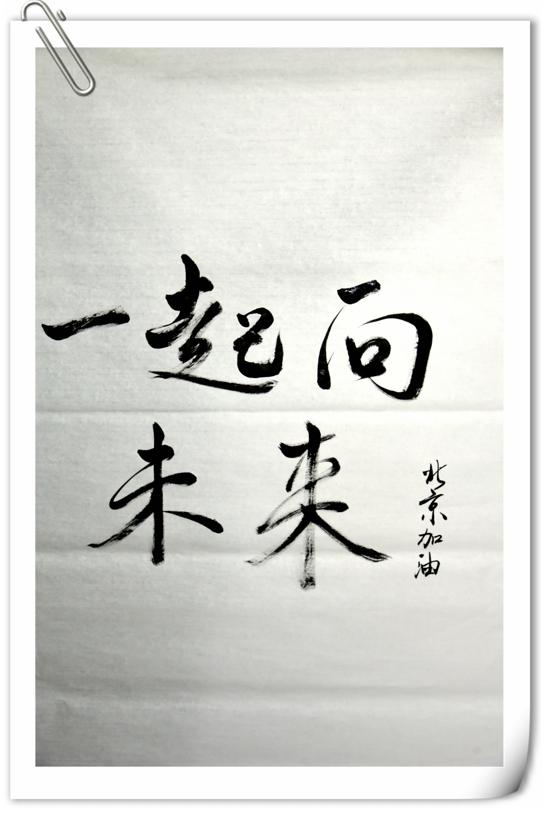 一起向
未来
北京加油